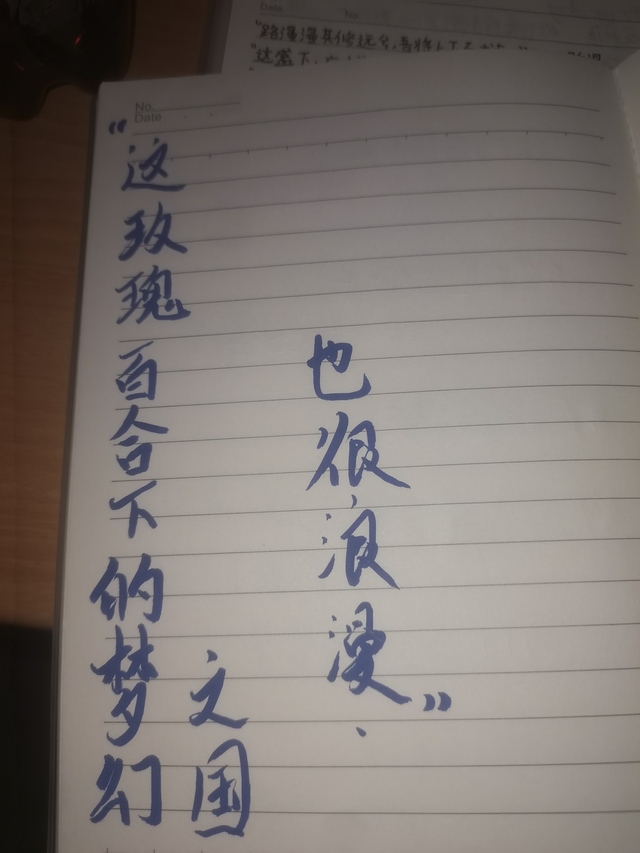 Date. No.
"路漫漫其修远兮,吾将上下
No.
Date
"这玫瑰百合下的梦幻
文国
也很浪漫"